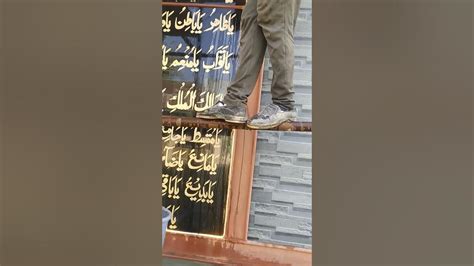 يَاظَاهِرُ يَابَاطِنُ يَا
يَاتَوَّابُ يَامُنْعِمُ يَا
يَامَالِكَ الْمُلْكِ
يَامُقْسِطُ يَاجَا
يَامَانِعُ يَاضَا
يَابَدِيعُ يَابَاقِي
يَا